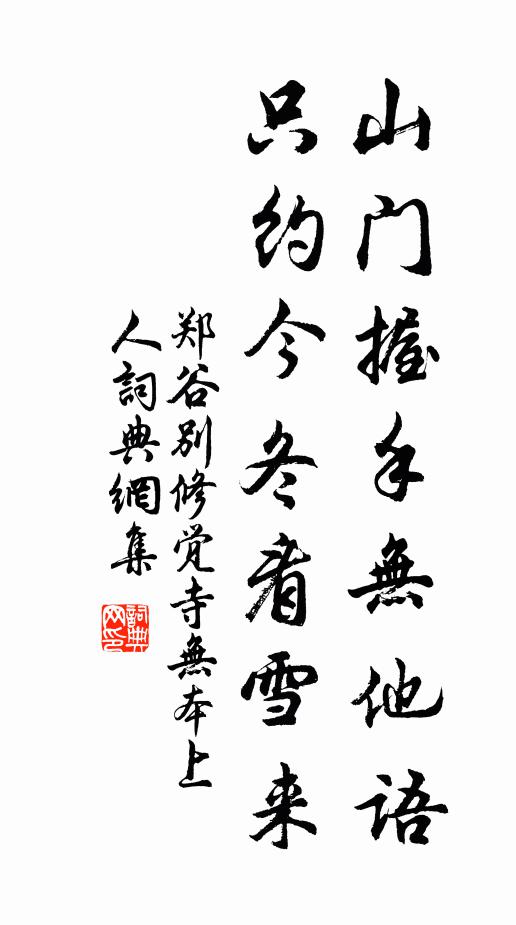 山门握手無他語
只约今冬看雪来
郑谷别修觉寺無本上
人詞典網集
詞典
网印